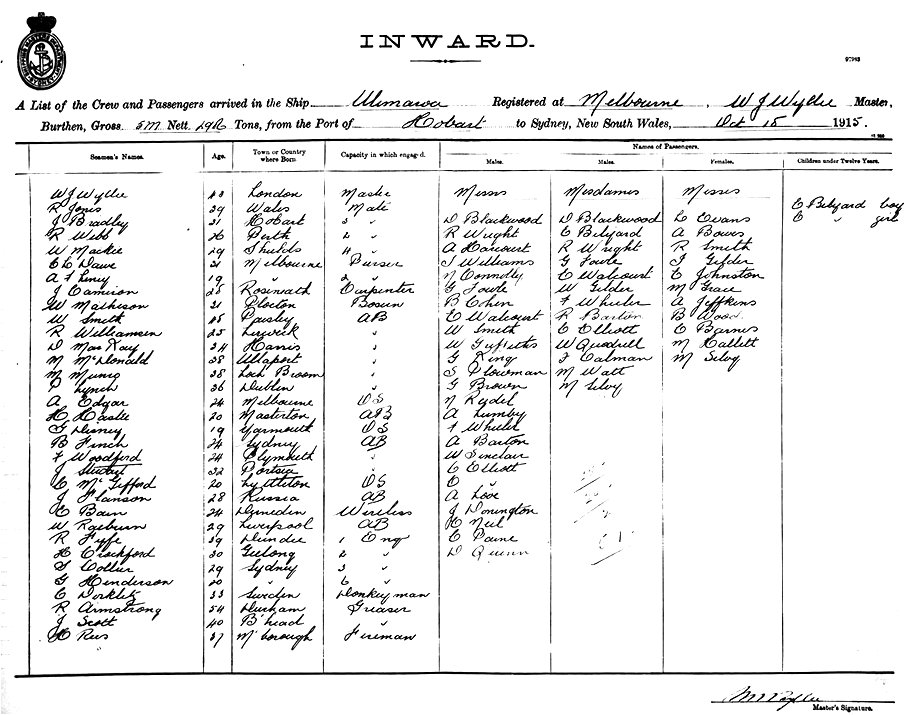 INWARD.
97993
A List of the Crew and Passengers arrived in the Ship Ulimaroa Registered at Melbourne, W J Wyllie Master,
Burthen, Gross Nett Tons, from the Port of Hobart to Sydney, New South Wales, Oct 18 1915.
Names of Passengers.
Seamen's Names. Age. Town or Country where Born Capacity in which engag-d. Males. Males. Females. Children under Twelve Years.
W J Wyllie London Master Messrs Mesdames Misses
R Jones 29 Wales Mate E Bilyard boy
J Bradley 31 Hobart 2 " D Blackwood D Blackwood L Evans E " girl
R Webb 26 Perth R Wright E Bilyard A Bowes
W Mackie 29 Shields 4 " A Harcourt R Wright R Smith
C C Dawe 21 Melbourne Purser J Williams G Fowle J Gilder
19 2 " N Connolly E Walcourt E Johnston
J Camiron 25 Carpenter G Fowle W Gilder M Grace
W Mathieson 31 Plocton Bosun B Chen F Wheeler A Jeffkins
W Smith Paisley AB E Walcourt R Barton B Wood
R Williamson 25 Lerwick " W Smith E Elliott E Barnes
D MacKay 34 Harris " W Griffiths W Quodrill M Hallett
M McDonald 38 Ullaport " G King J Calman M Selvy
M Munro 38 Loch Broom " S Plowman M Watt
P Lynch 36 Dublin " G Brown M Selvy
A Edgar 24 Melbourne OS N Rydel
H Hastie 20 Masterton AB A Lumby
G Disney 19 Yarmouth OS F Wheeler
B Finch 24 Sydney AB A Barton
F Woodford 24 Plymouth " W Sinclair
J 32 Portsea " E Elliott
E McGifford 20 Lyttleton OS E "
J Hanson 28 Russia AB A Love
E Bain 24 Dunedin Wireless J Donington
W Raeburn 29 Liverpool AB H Neil
R Fyfe 39 Dundee 1 Eng E Paine
H Crochford 30 Geelong 2 " D Quinn
S Collier 29 Sydney 3 "
G Henderson 20 " 6 "
E 33 Sweden Donkeyman
R Armstrong 54 Durham Greaser
J Scott 40 B'head "
H Rees 37 M'borough Fireman
Master's Signature.